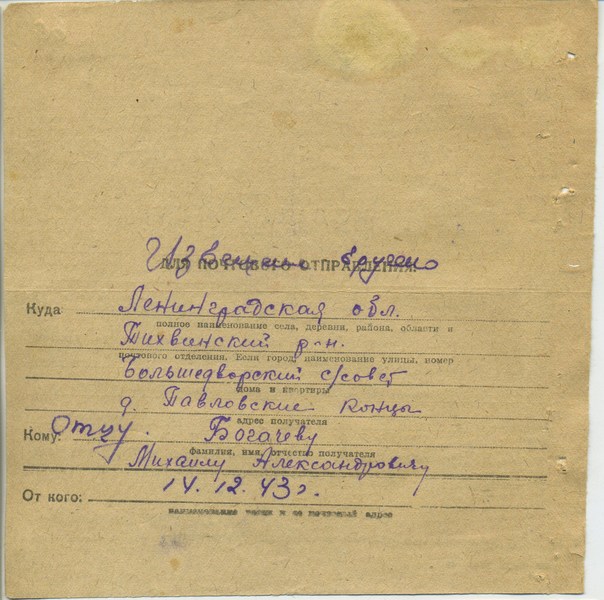 Извещение вручено
ДЛЯ ПОЧТОВОГО ОТПРАВЛЕНИЯ
Куда: Ленинградская обл.
полное наименование села, деревни, района, области и
Тихвинский р-н.
почтового отделения. Если город, наименование улицы, номер
Большедворский с/совет
дома и квартиры
д. Павловские Концы
адрес получателя
Кому: Отцу. Богачеву
фамилия, имя, отчество получателя
Михаилу Александровичу
От кого: 14.12.43г.
наименование части и ее почтовый адрес